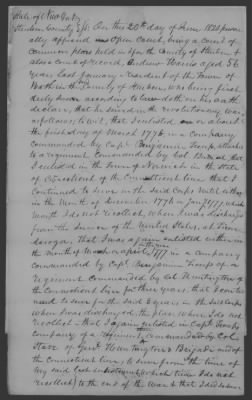 State of New York
Steuben County SS On this 20th day of June 1820 personally
appeared in Open Court, being a Court of
Common pleas held in & for the County of Steuben &
also a court of record, Andrew Harris aged 56
years last January, resident of the Town of
Bath in the County of Steuben, who being first
duly sworn according to law doth on his oath
declare, that he served in the revolutionary war
as follows (to wit), that I enlisted on or about
the first day of March 1776 in a company
commanded by Capt Benjamin Troop, attached
to a regiment Commanded by Col
I enlisted in the Town of Norwich in the State
of Connecticut of the Connecticut line, that I
continued to serve in the said Corps until either
in the month of December 1776 or Jany 1777, which
month I do not recollect, when I was discharged
from the service of the United States, at Ticonderoga,
that I was again enlisted either in
the month of March or April 1777 in a company
commanded by Capt Benjamin Troop in a
regiment Commanded by Col Huntington of
the Connecticut line for three years, that I continued
to serve for the said 3 years in the said Corps
when I was discharged, the place where I do not
recollect – that I again enlisted in Capt Troops
company of a regiment commanded by Col
Starr of Genl Huntingtons Brigade out of
the Connecticut line, to serve from the time of
my said last enlistment (which time I do not
recollect) to the end of the war & that I did so